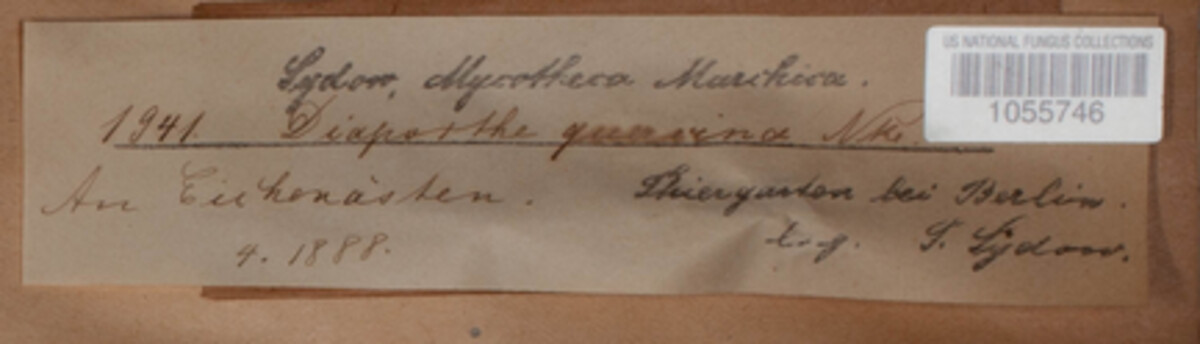 US NATIONAL FUNGUS COLLECTIONS
1055746
Sydow, Mycotheca Marchica.
1941. Diaporthe quercina Nke.
An Eichenästen. Thiergarten bei Berlin.
4. 1888. leg. P. Sydow.